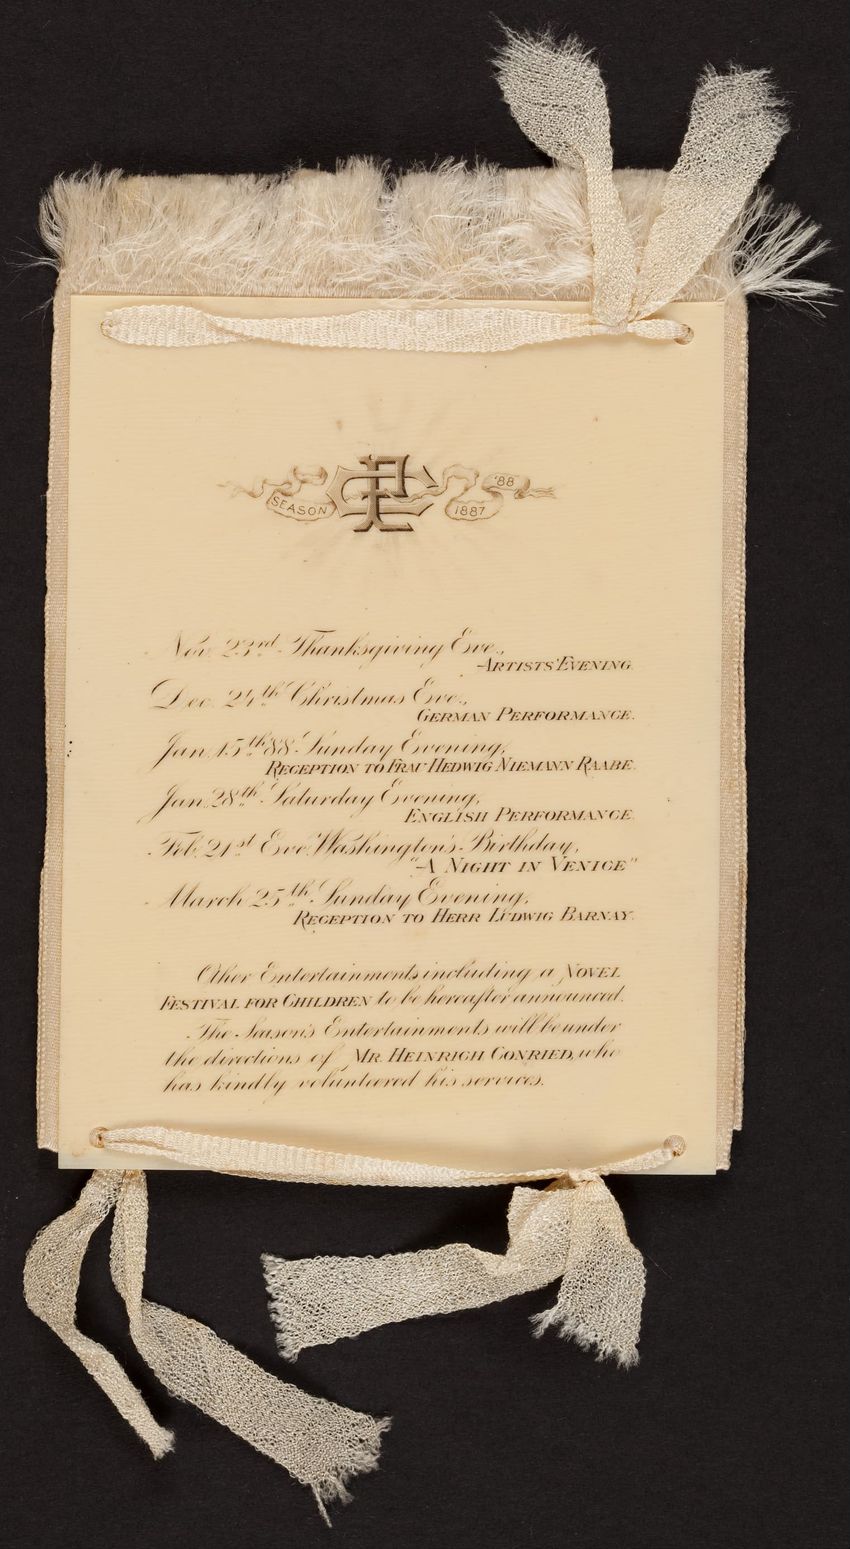 SEASON 1887 '88
Nov 23rd Thanksgiving Eve.,
ARTISTS' EVENING.
Dec. 24th Christmas Eve.,
GERMAN PERFORMANCE.
Jan. 15th '88 Sunday Evening,
RECEPTION TO FRAU HEDWIG NIEMANN RAABE.
Jan. 28th Saturday Evening,
ENGLISH PERFORMANCE.
Feb. 21st Eve Washington's Birthday,
"A NIGHT IN VENICE"
March 25th Sunday Evening,
RECEPTION TO HERR LUDWIG BARNAY.
Other Entertainments including a NOVEL
FESTIVAL FOR CHILDREN to be hereafter announced.
The Season's Entertainments will be under
the directions of MR. HEINRICH CONRIED, who
has kindly volunteered his services.